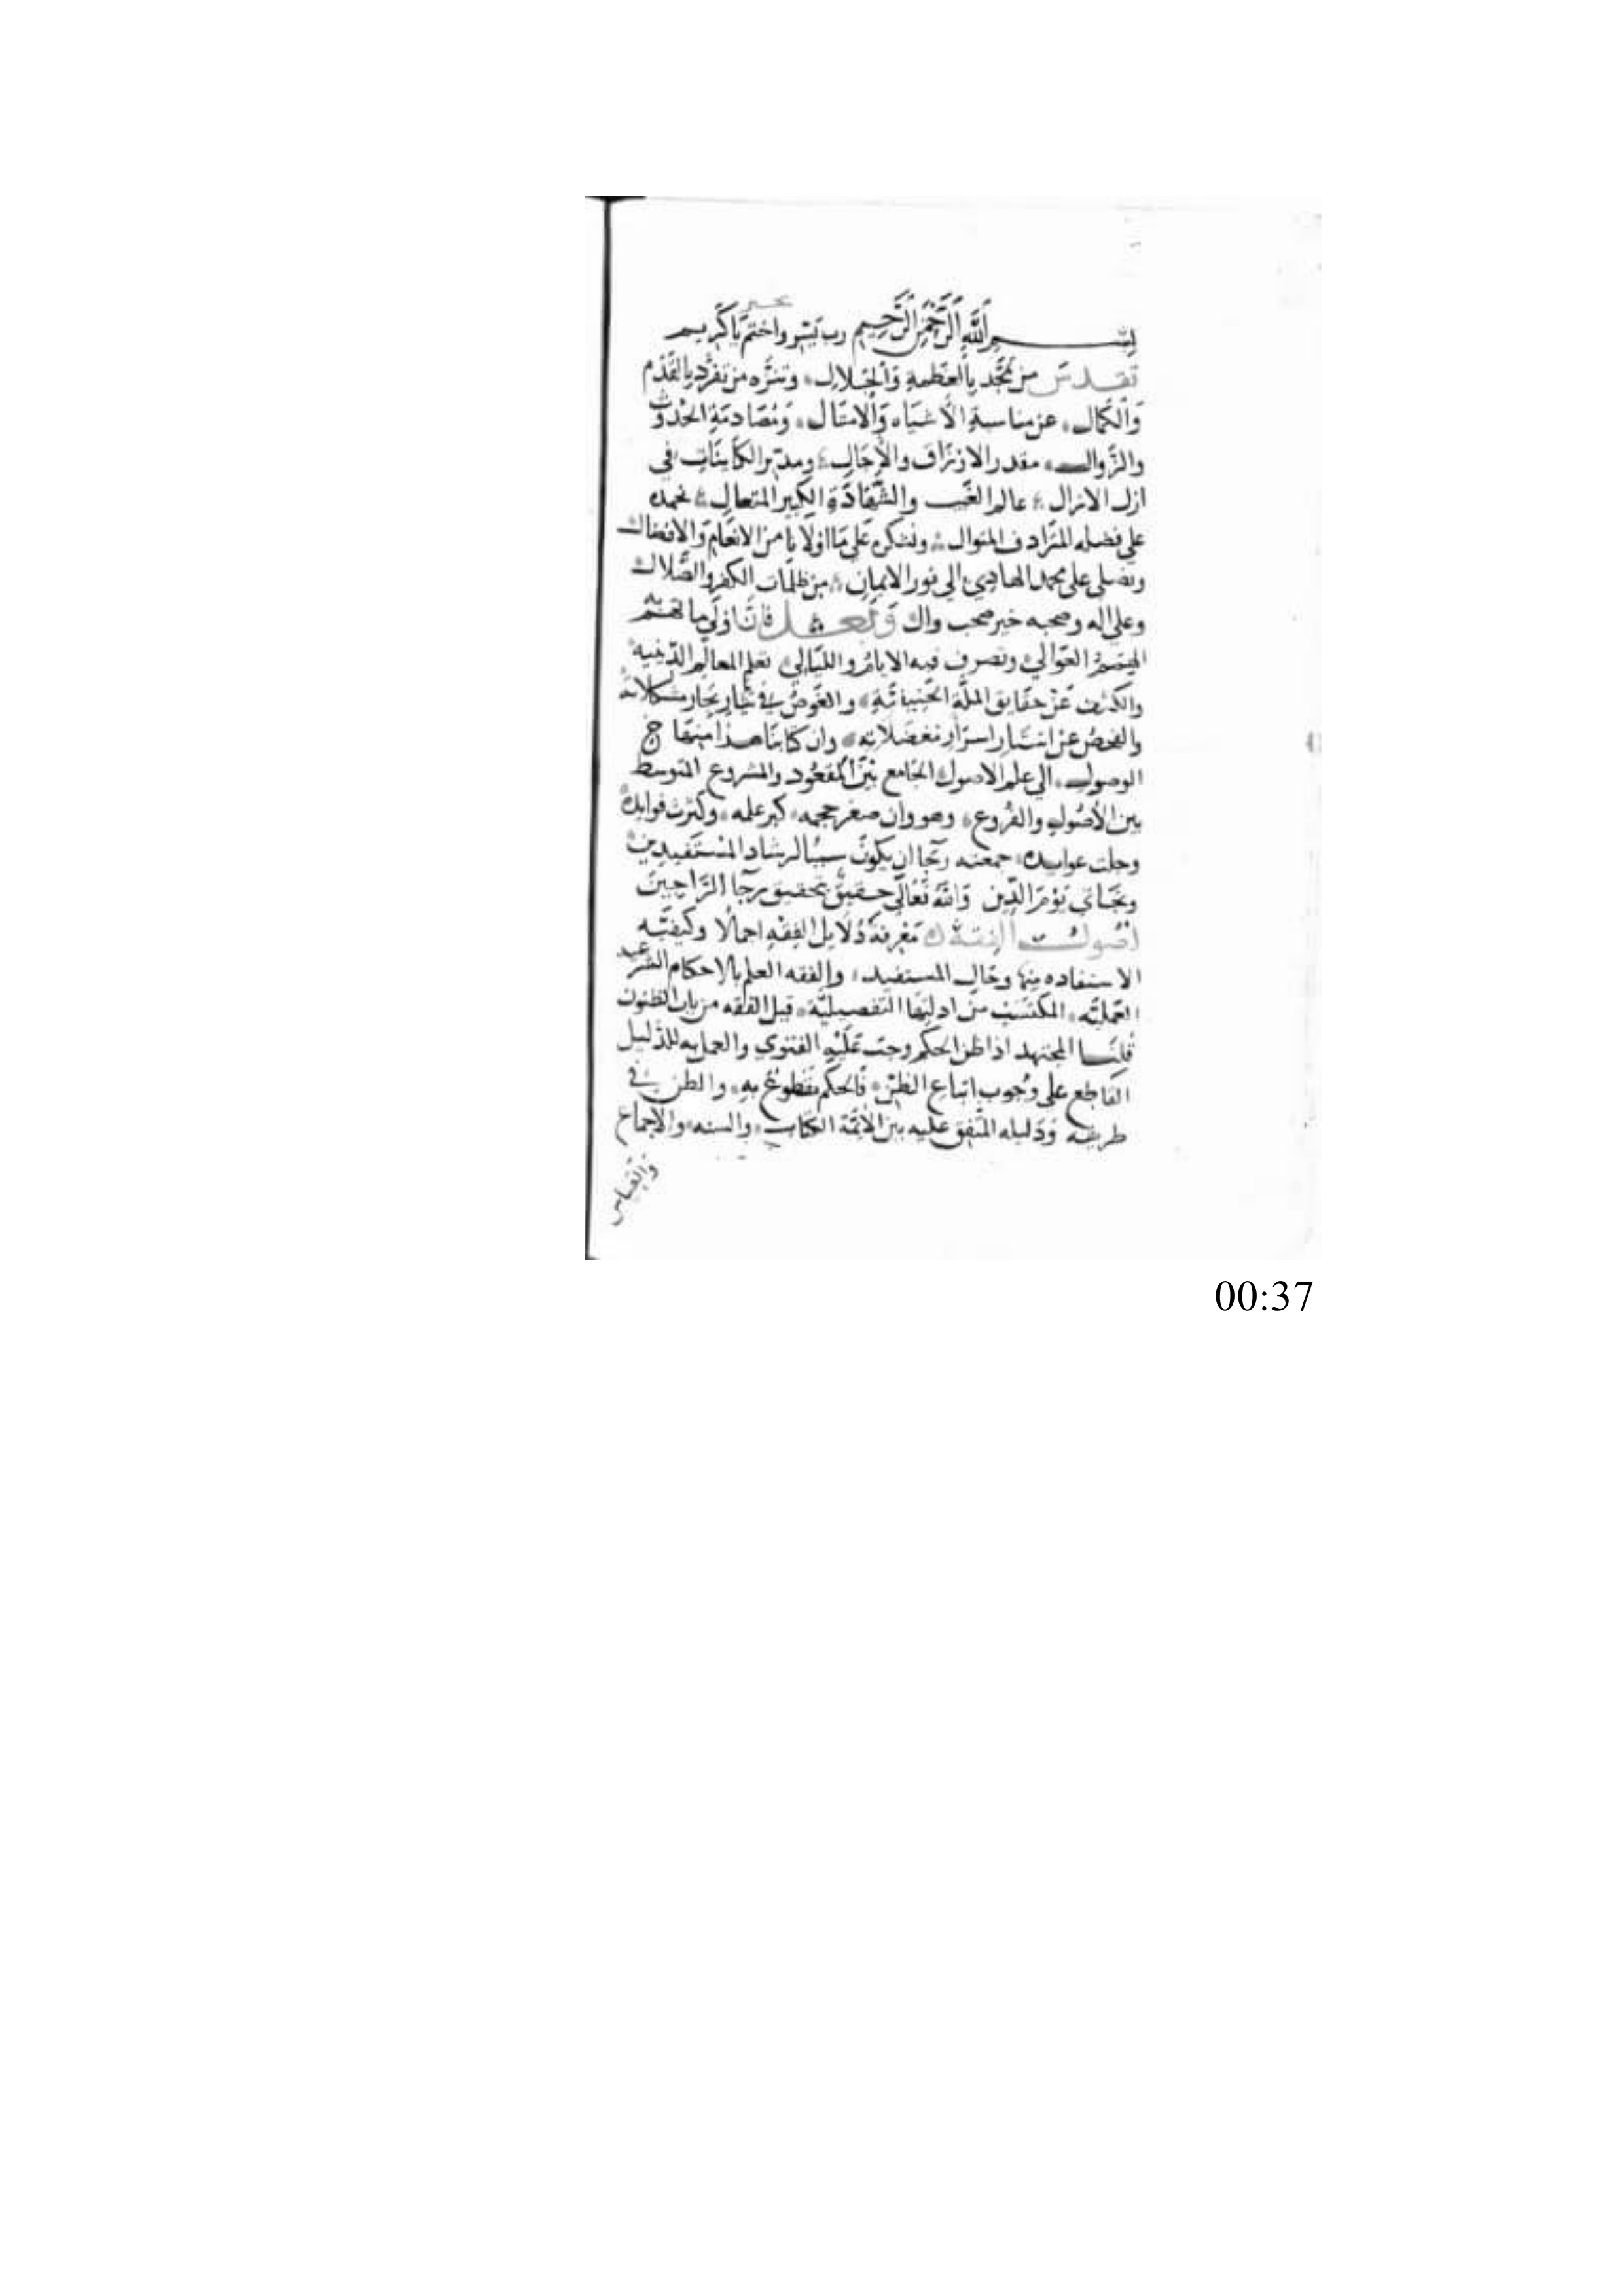 بخير
بسم اللَّه الرَّحمن الرَّحيم رب يَسّر واختم يا كَريم
تقدسَ من تمَجَّد بالعَظمةِ وَالجَلال وتنزَّه من تفرَّد بالقِدَم
وَالكَمال عن مناسبةِ الأشباه وَالامثال وَمُصَادمَةِ الحُدوث
والزَّوال مقدر الارزَاق والأَجَالِ ومدبّر الكَاينَاتِ في
ازل الازال عالم الغَيب والشَّهَادَةِ الكَبير المتعال نحمده
علي فضله المتَرَادف المتوال ونشكره عَلى مَا اولَانَا من الانعَام وَالافضال
ونصلى على محمد الهادي الي نور الايمان من ظلمَات الكفر والضَّلال
وعلى اله وصحبه خير صحب وال وَبَعد فانَّ اولَي ما تهتم به
الهمَمُ العَوَالي وتصرف فيه الايامُ والليَالي تعلم المعالِم الدّينية
والكشف عَنْ حقَايق الملَّة الحَنيفيَّةِ والغَوصُ في تيَار بحَار مشكلاته
والفحصُ عن استَار اسرَار مُعضلَاتِه وان كتابنَا هذا منهَاج
الوصول الي علم الاصول الجَامع بَيْنَ المَعقُود والمشروع المتوسط
بين الأصُول والفُروع وهو وان صغر حجمه كبر علمه وكثرت فوايده
وجلت عوايده جمعته رَجَا ان يكونَ سببًا لرشاد المُسْتَفيدين
ونجَاتي يَوْمَ الدِّين وَاللَّه تَعَالَى حقيقٌ بتحقيق رجَا الرَّاجينَ
أصُول الفقه مَعْرفَة دَلَايل الفِقْهِ اجمَالًا وكيفيَّة
الاستفاده منها وحَال المستفيد والفقه العلم بالاحكام الشرعيه
العَمَليَّه المكتسَبُ من ادلتهَا التفصيليَّة قيل الفقه من باب الظنون
قُلنَا المجتهد اذا ظن الحكم وجبَ عَلَيْه الفتوي والعمل به للدَّليل
القَاطع على وُجوب اتباع الظنّ فَالحكم مقطوعٌ بهِ والظن في
طريقه وَدَليله المتّفق عليه بين الأيمَّة الكتاب والسنه والاجماع
وَالقياس
00:37